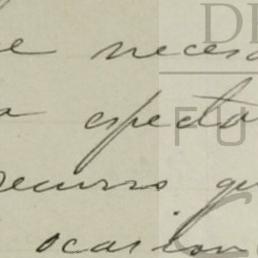 e neces
a especta
recurso qu
ocasion